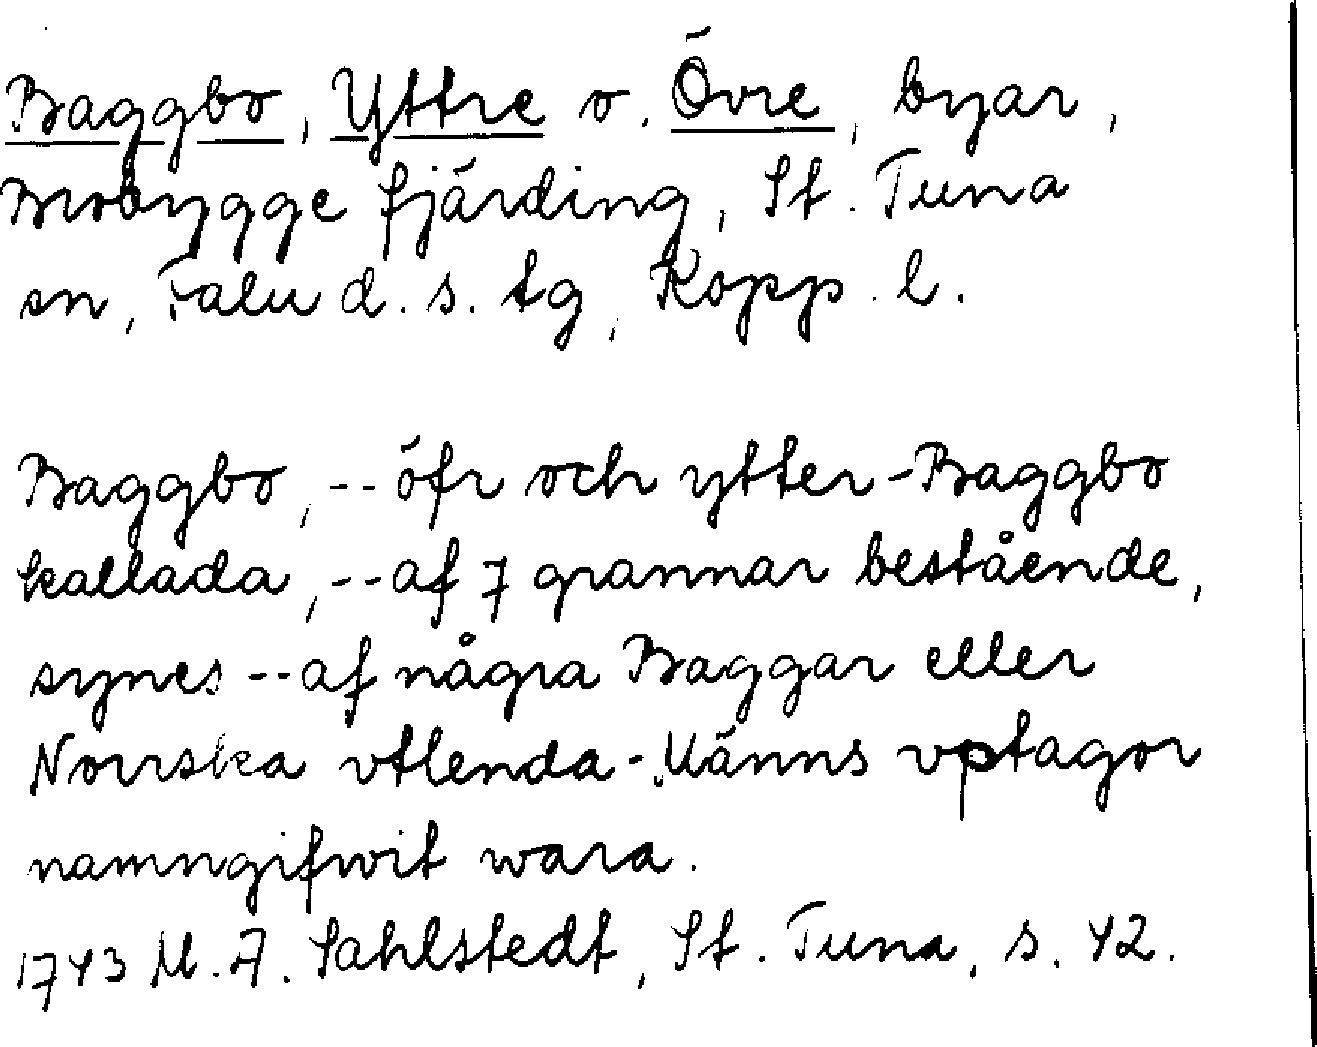 Baggbo, Yttre o. Övre, byar,
Brobygge fjärding, St. Tuna
sn, Falu d. s. tg, Kopp. l.
Baggbo, -- öfr och ytter-Baggbo
kallada, -- af 7 grannar bestående,
synes -- af några Baggar eller
Norrska vtlenda-Männs vptagor
namngifwit wara.
1743 M. A. Sahlstedt, St. Tuna, s. 42.